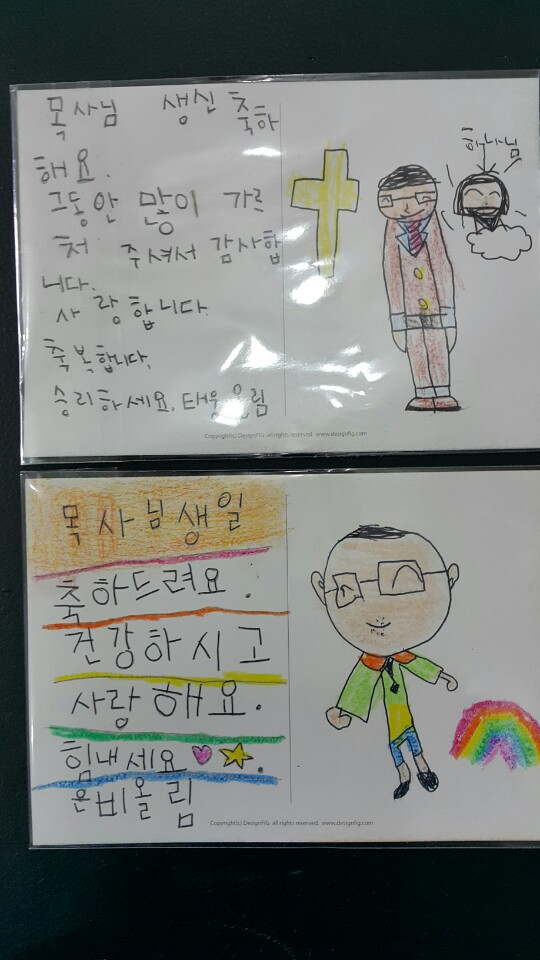 목사님 생신 축하
해요.
그동안 많이 가르
쳐 주셔서 감사합
니다.
사랑합니다.
축복합니다.
승리하세요. 태웅올림
하나님
Copyright(c) DesignFIG all rights reserved. www.designfig.com
목사님생일
축하드려요.
건강하시고
사랑해요.
힘내세요.
은비올림
Copyright(c) DesignFIG all rights reserved. www.designfig.com